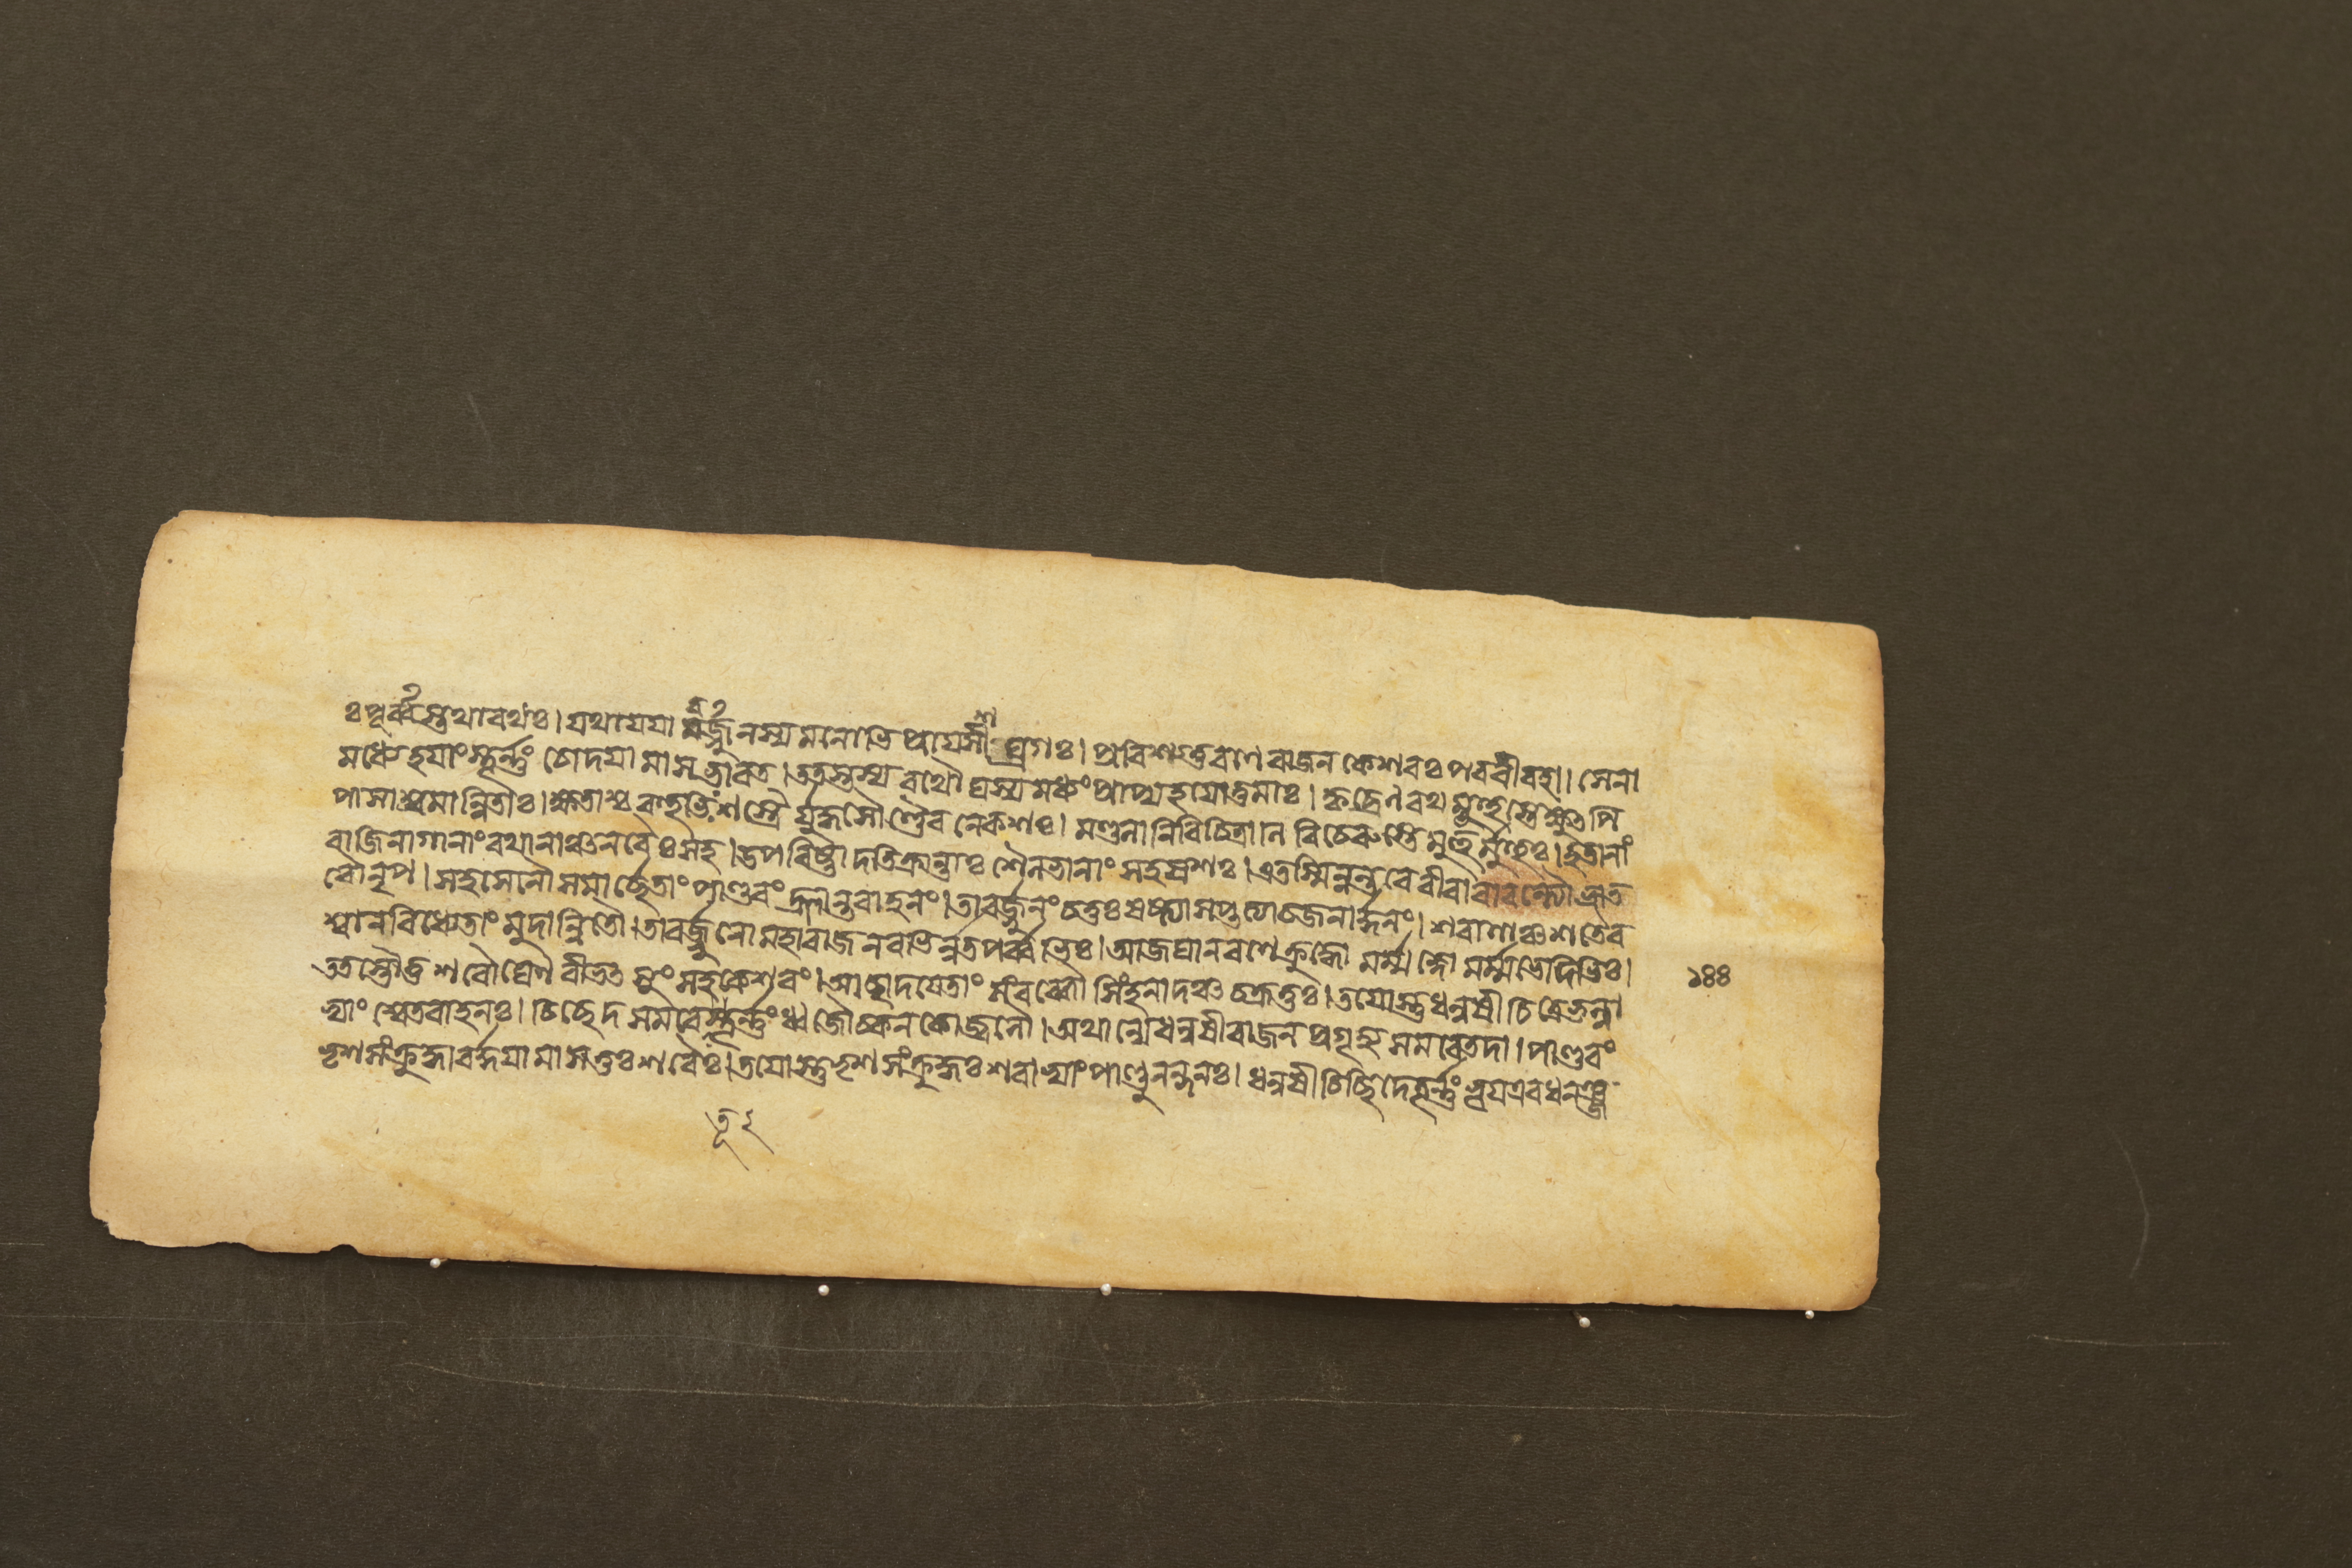 ঃপূর্ব্বস্তথারথঃ। যথাযযাবর্জ্জুনস্য মনোভিপ্রায়শীঘ্রগঃ। প্রবিশস্তু রণে রাজন কেশবঃ পরবীরহা। সেনা
মধ্যে হয়াংস্তূর্ন্নং চোদয়ামাস ভারত। ততস্তস্য রথৌঘস্য মধ্যং প্রাপ্য হয়োত্তমাঃ। কৃচ্ছ্রেণ রথমূহুস্তে ক্ষুৎপি
পাসাশ্রমান্বিতাঃ। ক্ষতাশ্চ বহুভিঃ শস্ত্রৈর্যুদ্ধসৌণ্ডৈরনেকশঃ। মণ্ডলানি বিচিত্রানি বিচেরুস্তে মুহুর্মুহুঃ। হতানাং
বাজিনাগানাং রথানাঞ্চ নরৈঃ সহ। উপরিষ্টাদতিক্রান্তাঃ শৈলাভানাং সহস্রশঃ। এতস্মিন্নন্তরে বীরাবাবন্ত্যৌ ভ্রাত
রৌ নৃপ। সহসেনৌ সমার্চ্ছেতাং পাণ্ডবং ক্লান্তবাহনং। তাবর্জ্জুনং চতুঃষষ্ট্যা সপ্তত্যা চ জনার্দ্দনং। শরাণাঞ্চ শতৈর
শ্বানবিধ্যেতাং মুদান্বিতৌ। তাবর্জ্জুনো মহারাজ নবভির্ন্নতপর্ব্বভিঃ। আজঘান রণে ক্রুদ্ধো মর্ম্মজ্ঞো মর্ম্মভেদিভিঃ।
১৪৪
ততস্তৌ তু শরৌঘেণ বীভৎসুং সহকেশবং। আচ্ছাদয়েতাং সংরব্ধৌ সিংহনাদঞ্চ চক্রতুঃ। তয়োস্তু ধনুষী চিত্রে ভল্লা
ভ্যাং শ্বেতবাহনঃ। চিচ্ছেদ সমরে তূর্ন্নং ধ্বজৌ চ কনকোজ্জ্বলৌ। অথান্যে ধনুষী রাজন প্রগৃহ্য সমরে তদা। পাণ্ডবং
ভৃশসংক্রুদ্ধাবর্দ্দয়ামাসতুঃ শরৈঃ। তয়োস্তু ভৃশসংক্রুদ্ধঃ শরাভ্যাং পাণ্ডুনন্দনঃ। ধনুষী চিচ্ছিদে তূর্ন্নং ভূয় এব ধনঞ্জ